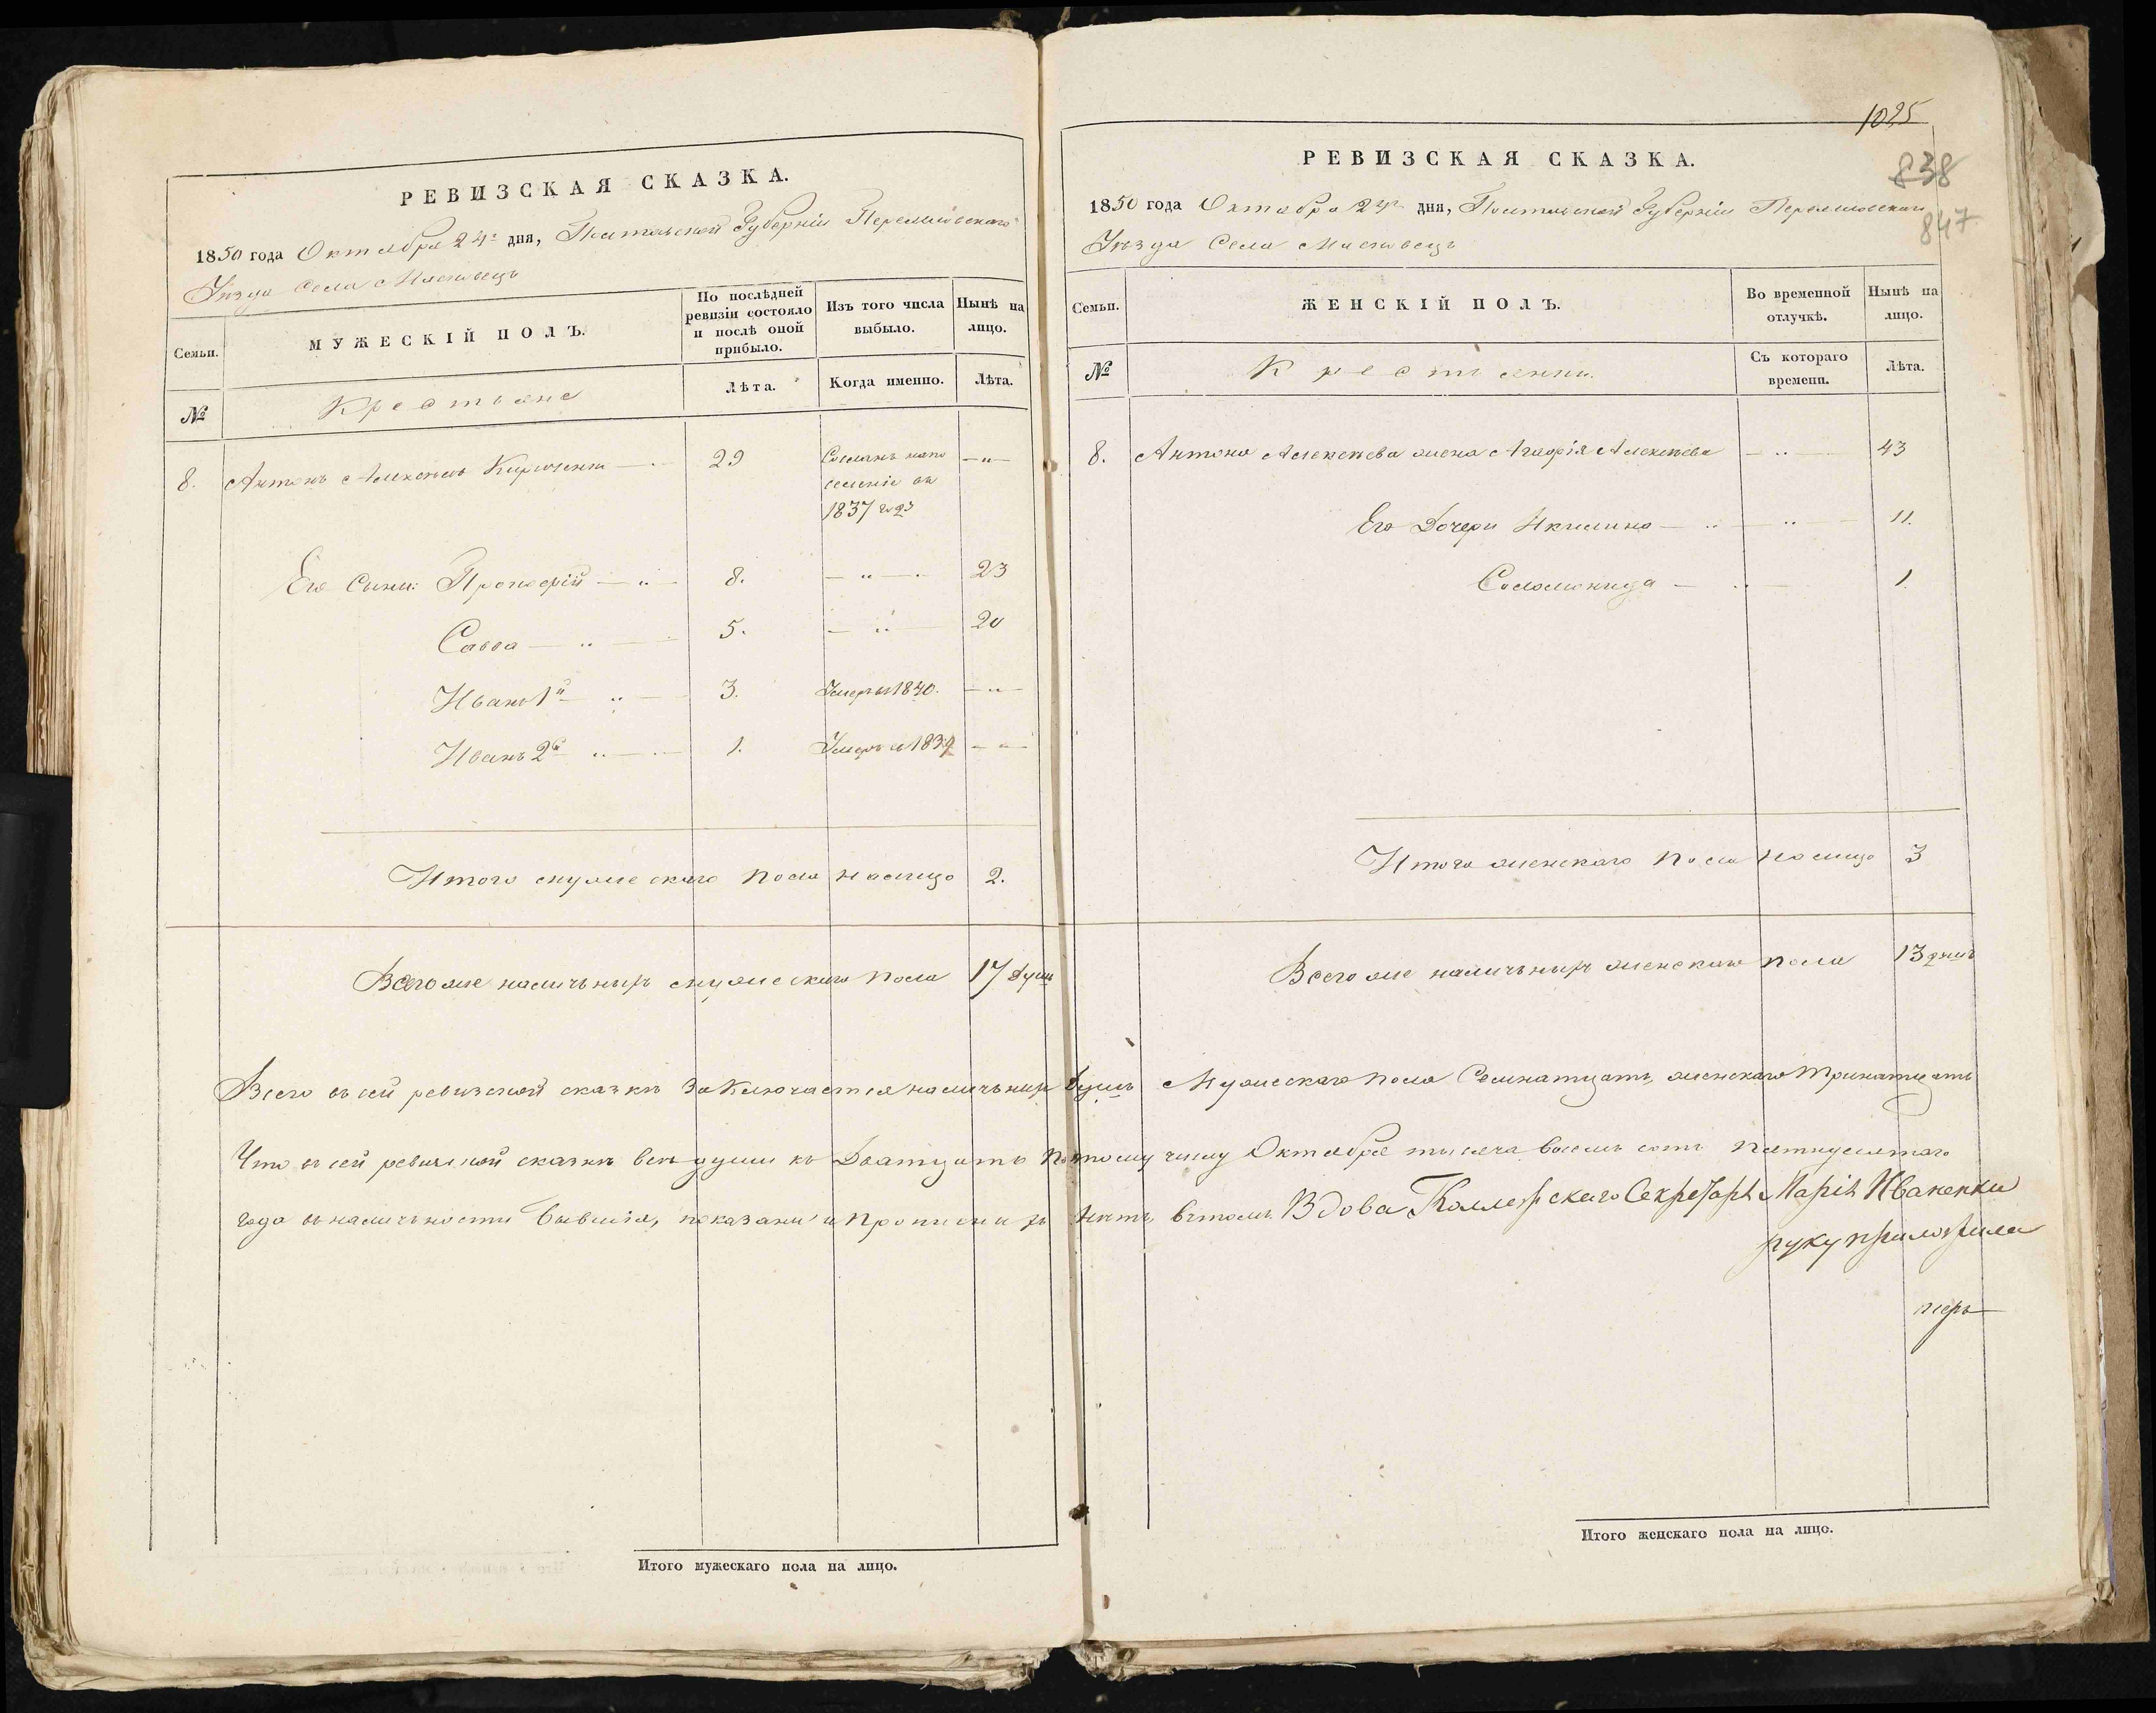 РЕВИЗСКАЯ СКАЗКА.
1850 года Октября 24го дня, Полтавской Губерніи Переяславскаго
Уѣзда Села
Семьи.
МУЖЕСКІЙ ПОЛЪ.
По послѣдней ревизіи состояло и послѣ оной прибыло.
Изъ того числа выбыло.
Нынѣ на лицо.
№
Крестьяне
Лѣта.
Когда именно.
Лѣта.
8. Антонъ Алексѣевъ 29 Сосланъ на по
селеніе въ
1837 году
Его Сыны: Прокофій 8. 23
Савва 5. 20
Иванъ 1й 3. Умеръ въ 1840.
Иванъ 2й 1. Умеръ въ
Итого мужескаго пола налицо 2.
Всего же наличныхъ мужескаго пола 17 душъ
Итого мужескаго пола на лицо.
1025
838
847
РЕВИЗСКАЯ СКАЗКА.
1850 года Октября 24го дня, Полтавской Губерніи Переяславскаго
Уѣзда Села
Семьи.
ЖЕНСКІЙ ПОЛЪ.
Во временной отлучкѣ.
Нынѣ на лицо.
№
Крестьянки.
Съ котораго времени.
Лѣта.
8. Антона Алексѣева жена Агафія Алексѣева 43
Его Дочери Акилина 11.
Соломонида 1.
Итого женскаго пола налицо 3
Всего же наличныхъ женскаго пола 13 душъ
Всего въ сей ревизской сказкѣ заключается наличныхъ душъ Мужескаго пола Семнатцать, женскаго тринатцать
Что въ сей ревизской сказкѣ всѣ души къ Дватцать Октября тысяча восемь сотъ пятидесятаго
года въ наличности бывшія, показаны и прописныхъ нѣтъ, вътомъ Вдова Коллежскаго Секретаря Марія Иваненкы
руку приложила
Итого женскаго пола на лицо.